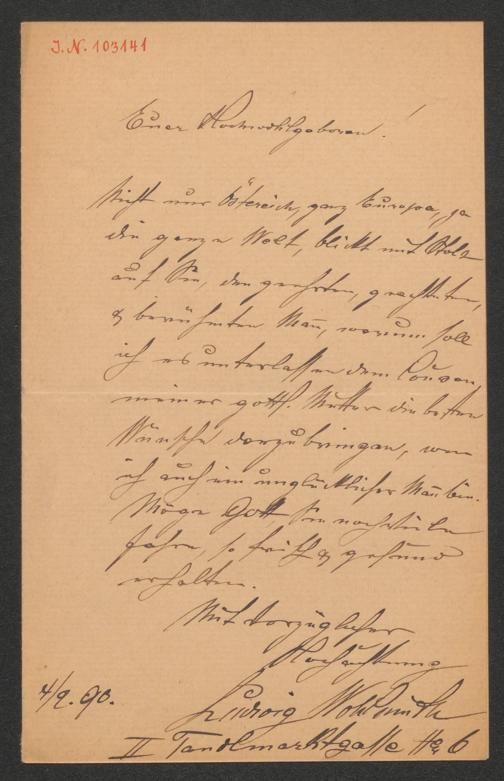 I. N. 103141
Euer Hochwohlgeboren!
Nicht nur Östereich, ganz Europa, ja
die ganze Welt, blickt mit Stolz
auf Sie, den geehrten, geachteten,
& berühmten Mann, warum soll
ich es unterlassen dem Cousen
meiner gotts. Mutter die besten
Wünsche darzubringen, wenn
ich auch ein unglücklicher Mann bin.
Möge Gott Sie noch viele
Jahre, so frisch & gesund
erhalten.
Mit vorzüglicher
Hochachtung
Ludwig
4/9. 90.
II Tandlmarktgasse No 6